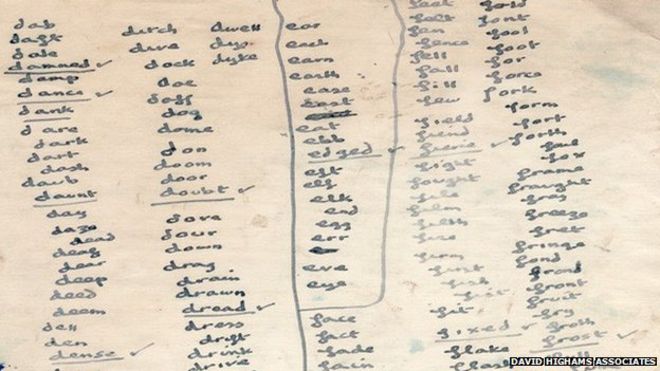 dab
daft
dale
damned ✓
damp
dance ✓
dank
dare
dark
dart
dash
daub
daunt ✓
day
daze
dead
deaf
dear
deep
deed
deem
dell
den
dense ✓
ditch
dive
dock
doe
doff
dog
dome
don
doom
door
doubt ✓
dove
dour
down
drag
drain
drawn
dread ✓
dress
drift
drink
drive
dwell
dye
dyke
ear
each
earn
earth
ease
east
eat
ebb
edged ✓
eft
elf
elk
end
egg
err
eve
eye
face
fact
fade
fain
feet
felt
fen
fence
fell
fall
fill
few
field
fiend
fierie ✓
fight
fought
file
film
filth
fire
firm
first
fish
fist
fit
fixed ✓
flake
fold
font
fool
foot
for
force
fork
form
fort
forth
foul
fox
frame
fraught
free
freeze
fret
fringe
fond
frond
front
fruit
fry
froth
frost ✓
DAVID HIGHAMS ASSOCIATES